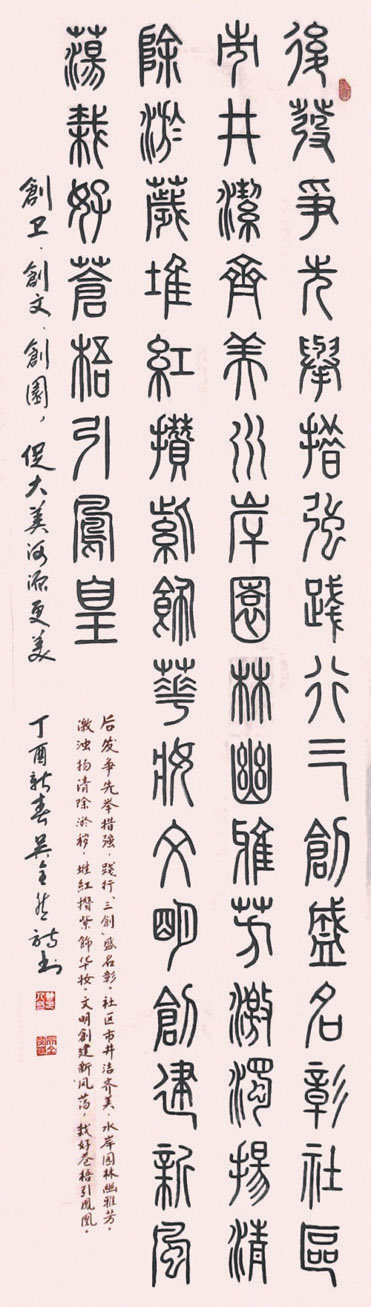 後發爭先舉措強踐行三創盛名彰社區
市井潔齊美水岸園林幽雅芳激濁揚清
除淤薉堆紅攢紫飾華妝文明創建新風
蕩栽好蒼梧引鳳皇
后发争先举措强，践行《三创》盛名彰。社区市井洁齐美，水岸园林幽雅芳。
激浊扬清除淤秽，堆红攢紫飾华妆。文明創建新风荡，栽好苍梧引凤凰。
創卫·創文·創園，促大美河源更美
丁酉新春吴
诗书